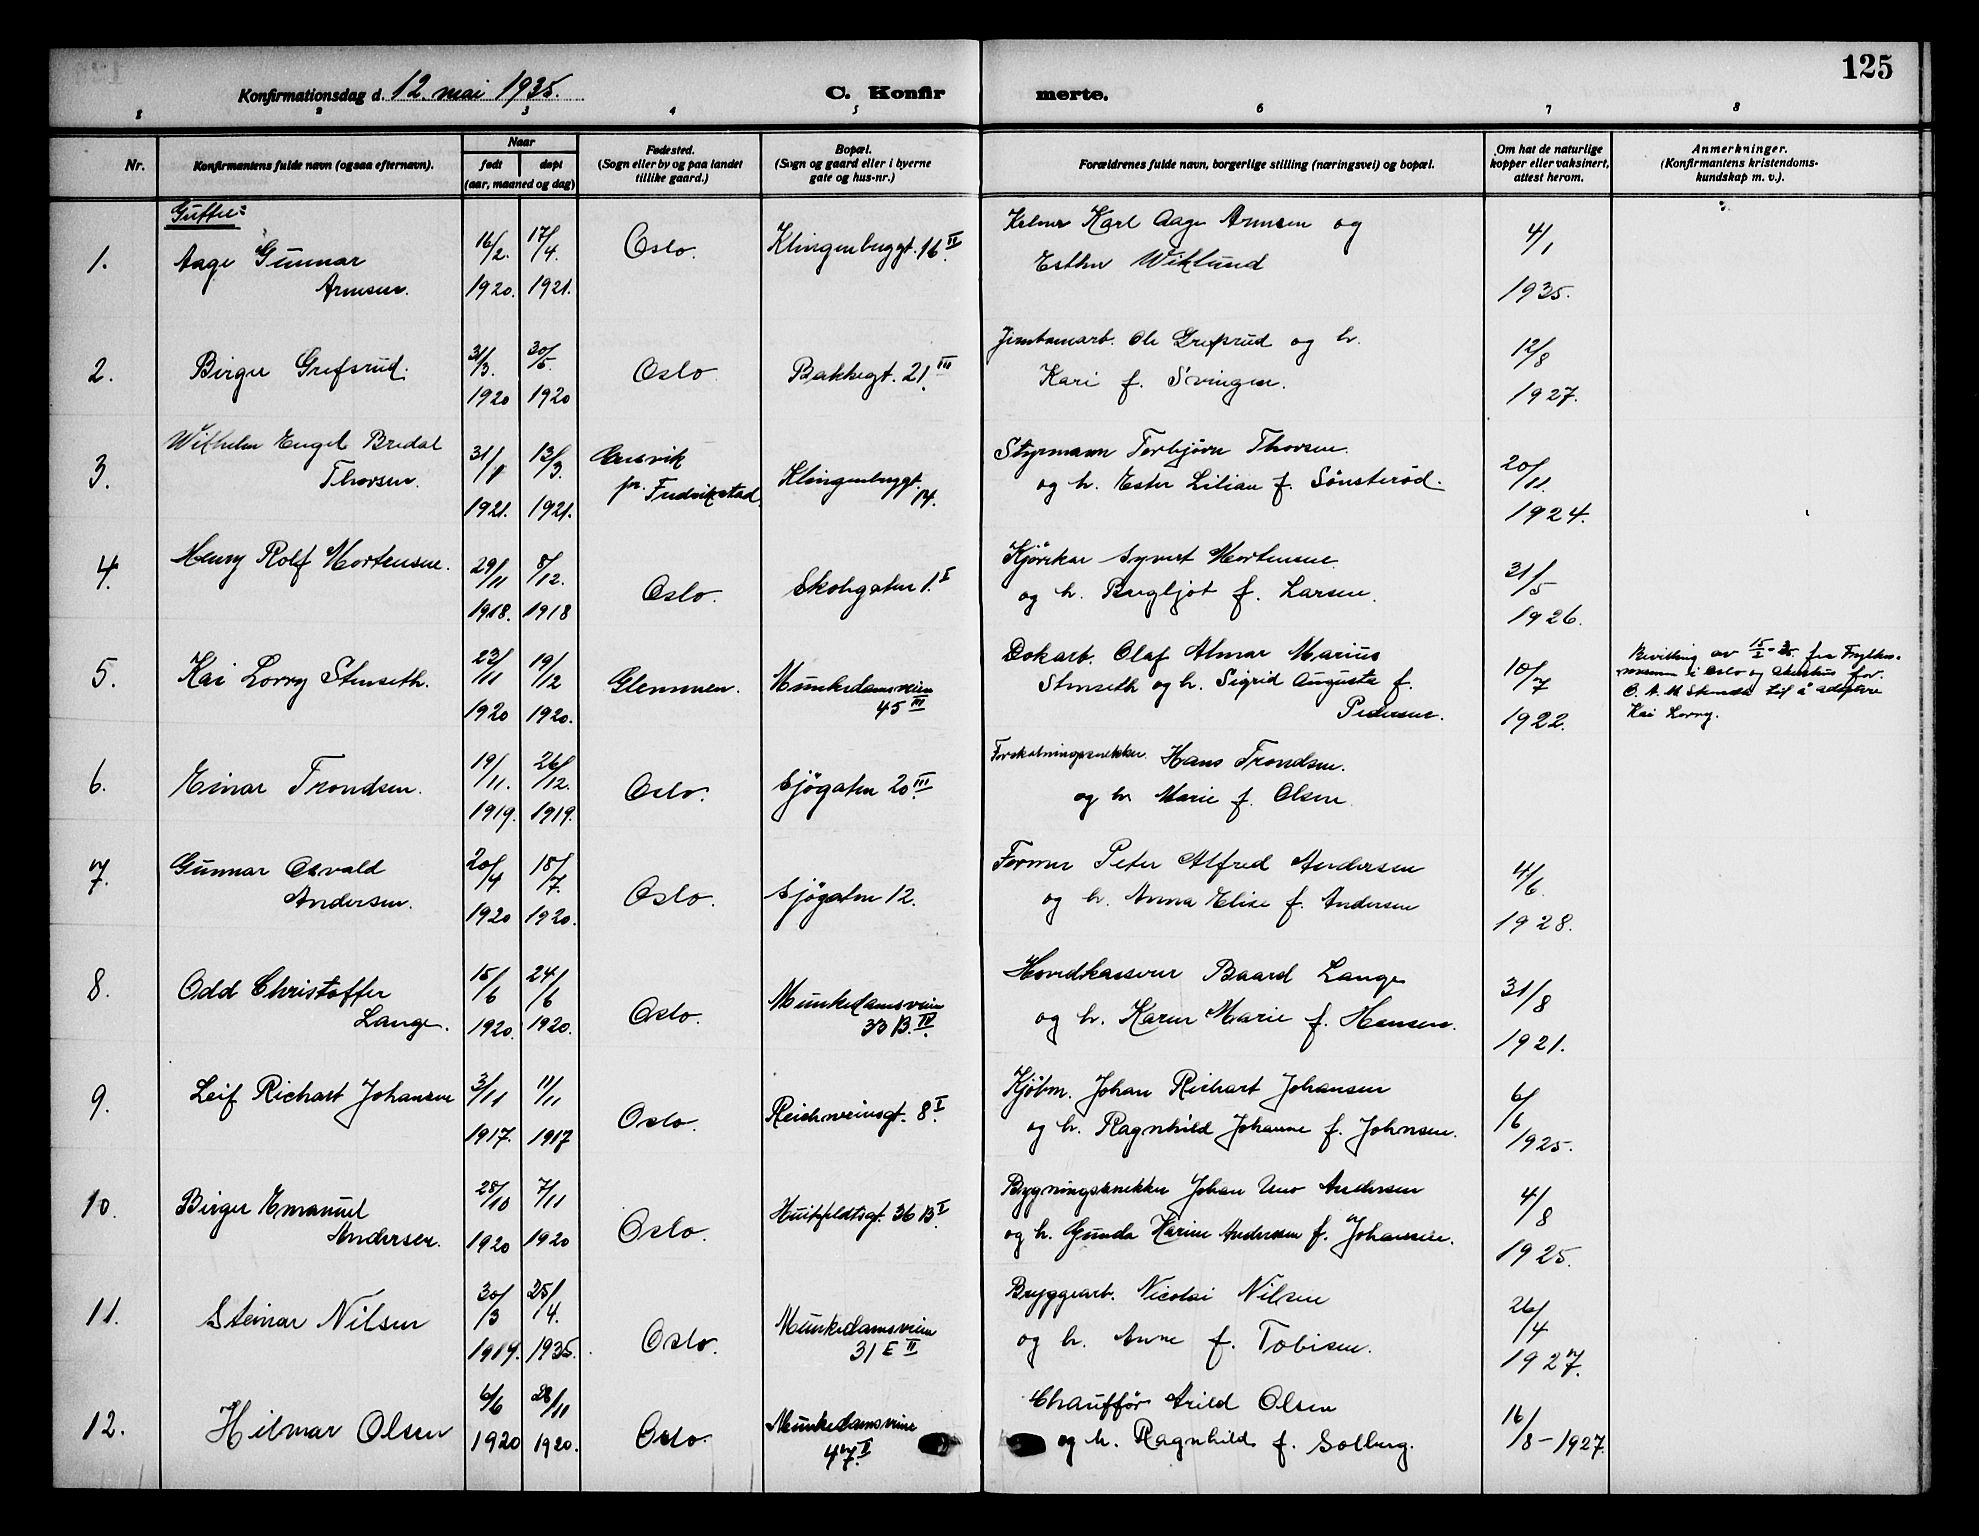 125
Konfirmationsdag d. 12. mai 1935.
C. Konfirmerte.
1 2 3 4 5 6 7 8
Nr.
Konfirmantens fulde navn (ogsaa efternavn).
Naar
født
døpt
(aar, maaned og dag)
Fødested.
(Sogn eller by og paa landet
tillike gaard.)
Bopæl.
(Sogn og gaard eller i byerne
gate og hus-nr.)
Forældrenes fulde navn, borgerlige stilling (næringsvei) og bopæl.
Om hat de naturlige
kopper eller vaksinert,
attest herom.
Anmerkninger.
(Konfirmantens kristendoms-
kundskap m. v.).
Gutter:
1. Aage Gunnar
Arnesen. 16/2. 1920. 17/4. 1921. Oslo. Klingenbggt. 16 IV.
Kelner Karl Aage Arnesen og
Esther Wiklund
4/1 1935.
2. Birger Grefsrud. 31/3. 1920 30/5. 1920 Oslo Bakkegt. 21. III
Jernbanearb. Ole Grefsrud og h.
Kari f. Svingen.
12/8 1927.
3. Wilhelm Engel Bredal
Thorsen. 31/1 1921. 13/3. 1921. pr. Fredrikstad. Klingenbggt.
14.
Styrmann Torbjørn Thorsen.
og h. Ester Lilian f. Sönsteröd.
20/11. 1924.
4. Henry Rolf Mortensen. 29/11 1918. 8/12. 1918 Oslo. Skolegaten 1. I
Kjörekar Syvert Mortensen
og h. Bergljot f. Larsen.
31/5 1926.
5. Kai Lorry Stenseth. 23/11 1920 19/12 1920. Glemmen. Munkedamsveien
45 III
Dokarb. Olaf Almar Marius
Stenseth og h. Sigrid Auguste f.
Pedersen.
10/7 1922.
Bevilling av 15/2-35 fra Fylkes-
mannen i Oslo og Akershus for
O. A. M Stenseth til å adoptere
Kai Lorry.
6. Einar Trondsen. 19/11. 1919. 26/12. 1919. Oslo. Sjögaten 20 III.
Forskalningssnekker Hans Trondsen.
og h. Marie f. Olsen.
7. Gunnar Osvald
Andersen. 20/4 1920 18/7. 1920. Oslo. Sjögaten 12.
Former Peter Alfred Andersen
og h. Anna Elise f. Andersen
4/6. 1928.
8. Odd Christoffer
Lange. 15/6 1920. 24/6 1920. Oslo. Munkedamsveien
33 B. IV.
Hovedkasserer Baard Lange
og h. Karen Marie f. Hansen.
31/8 1921.
9. Leif Richart Johansen 3/11 1917. 11/11 1917 Oslo. Reichweinsgt. 8 I
Kjöbm. Johan Richart Johansen
og h. Ragnhild Johanne f. Johnsen.
6/6 1925.
10. Birger Emanuel
Andersen. 28/10 1920 7/11 1920 Oslo. Huitfeldtsgt. 36 B I.
Bygningssnekker Johan Uno Andersen
og h. Gunda Karine Andersen f. Johansen.
4/8 1925.
11. Steinar Nilsen 30/3 1919. 25/4. 1935. Oslo. Munkedamsveien
31 E II
Bryggearb. Nicolai Nilsen
og h. Anne f. Tobisen.
26/4 1927.
12. Hilmar Olsen 6/6 1920 28/11 1920. Oslo. Munkedamsveien
47. I
Chauffør Arild Olsen
og h. Ragnhild f. Solberg.
16/8-1927.